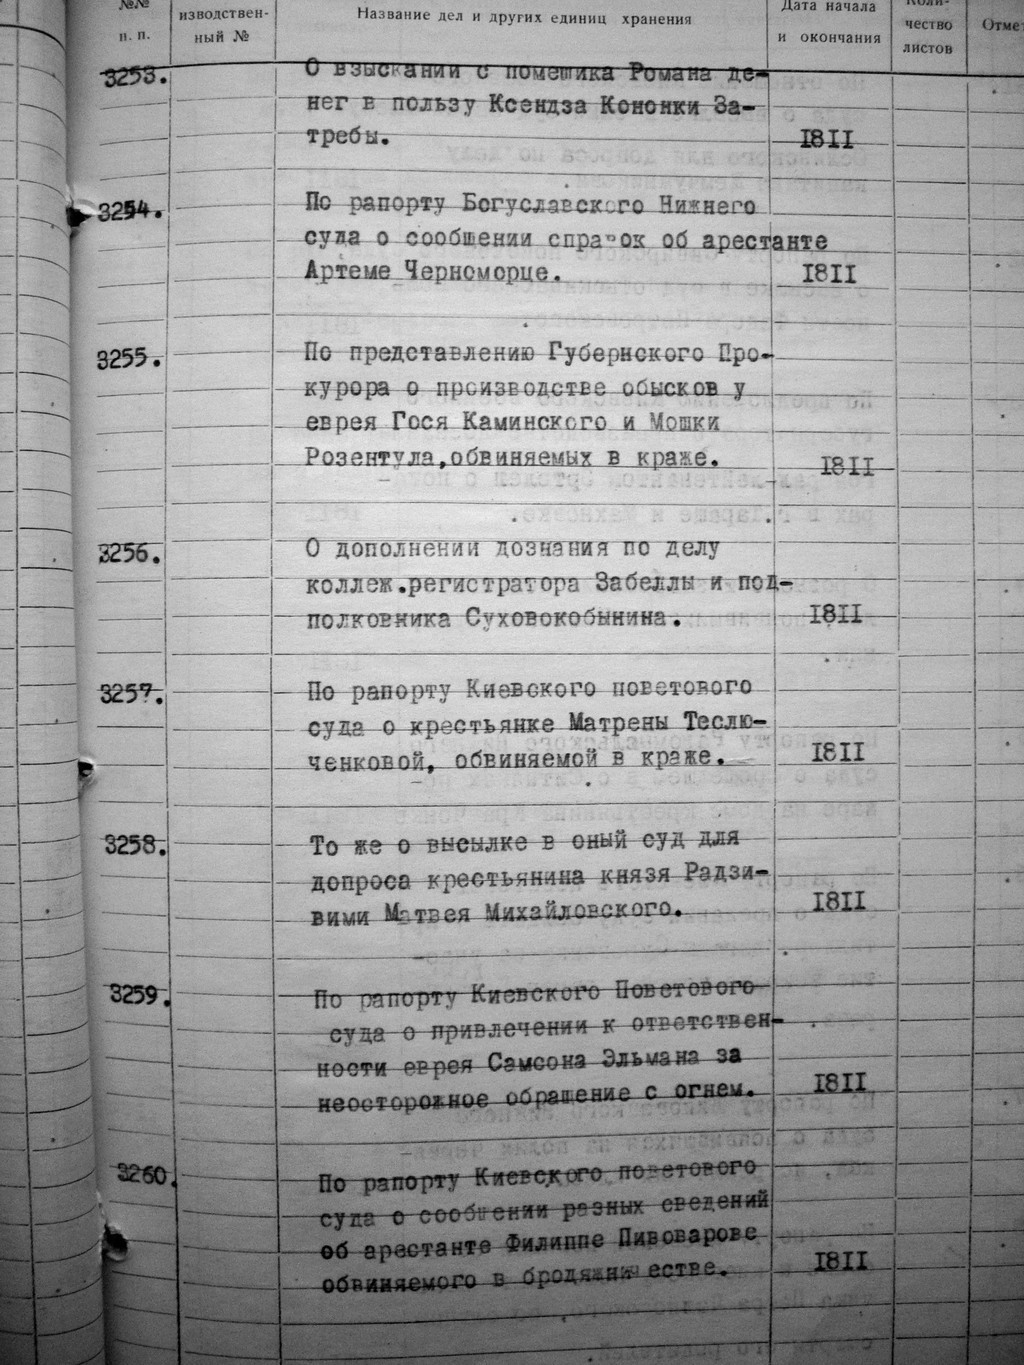 №№
п. п.
изводствен-
ный №
Название дел и других единиц хранения
Дата начала
и окончания
Коли-
чество
листов
3253.
О взыскании с помещика Романа де-
нег в пользу Ксендза Кононки За-
требы.
1811
3254.
По рапорту Богуславского Нижнего
суда о сообщении справок об арестанте
Артеме Черноморце.
1811
3255.
По представлению Губернского Про-
курора о производстве обысков у
еврея Гося Каминского и Мошки
Розентула,обвиняемых в краже.
1811
3256.
О дополнении дознания по делу
коллеж.регистратора Забеллы и под-
полковника Суховокобынина.
1811
3257.
По рапорту Киевского поветового
суда о крестьянке Матрены Теслю-
ченковой, обвиняемой в краже.
1811
3258.
То же о высылке в оный суд для
допроса крестьянина князя Радзи-
вими Матвея Михайловского.
1811
3259.
По рапорту Киевского Поветового
суда о привлечении к ответствен-
ности еврея Самсона Эльмана за
неосторожное обращение с огнем.
1811
3260.
По рапорту Киевского поветового
суда о сообщении разных сведений
об арестанте Филиппе Пивоварове
обвиняемого в бродяжничестве.
1811